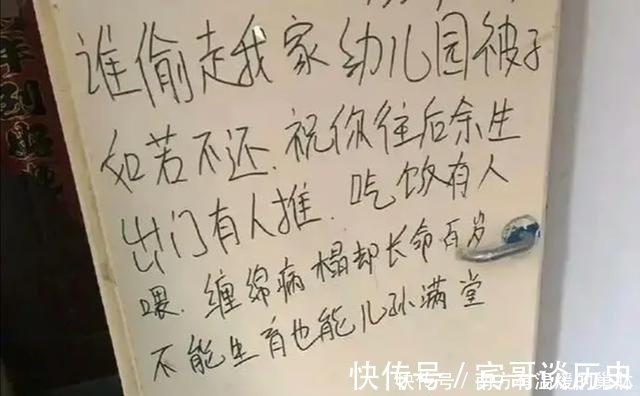 谁偷走我家幼儿园被子
如若不还.祝你往后余生
出门有人推.吃饭有人
喂.缠绵病榻却长命百岁
不能生育也能儿孙满堂
快传号／宾哥谈历史
快传号／